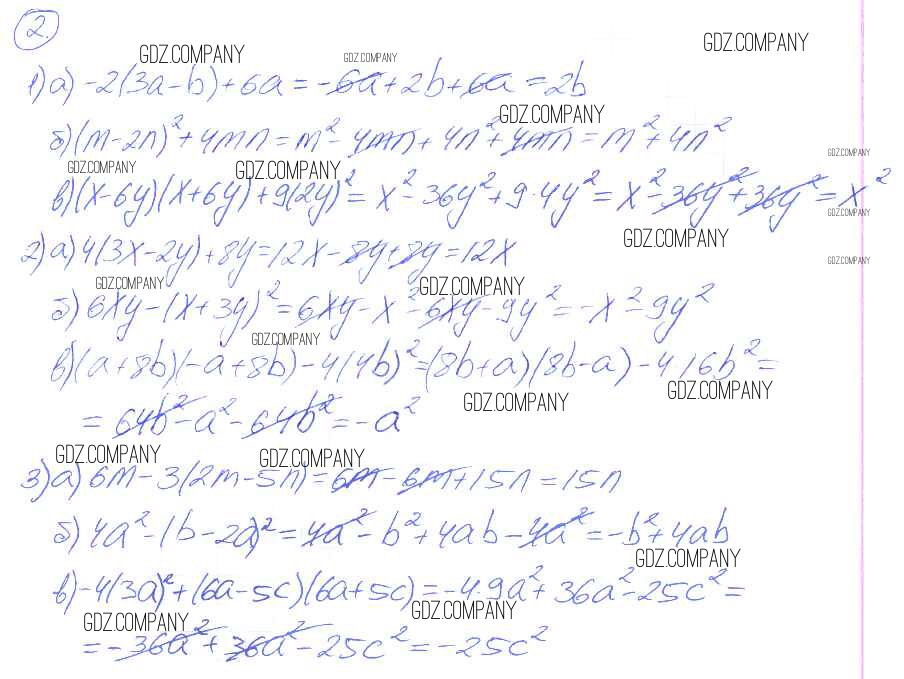 2.
GDZ.COMPANY GDZ.COMPANY GDZ.COMPANY
1) а) -2(3a-b)+6a=-6a+2b+6a=2b
GDZ.COMPANY
б) (m-2n)²+4mn=m²-4mn+4n²+4mn=m²+4n²
GDZ.COMPANY GDZ.COMPANY GDZ.COMPANY
в) (x-6y)(x+6y)+9(2y)²=x²-36y²+9·4y²=x²-36y²+36y²=x²
GDZ.COMPANY GDZ.COMPANY
2) а) 4(3x-2y)+8y=12x-8y+8y=12x
GDZ.COMPANY
GDZ.COMPANY GDZ.COMPANY
б) 6xy-(x+3y)²=6xy-x²-6xy-9y²=-x²-9y²
GDZ.COMPANY
в) (a+8b)(-a+8b)-4(4b)²=(8b+a)(8b-a)-4·16b²=
GDZ.COMPANY GDZ.COMPANY
=64b²-a²-64b²=-a²
GDZ.COMPANY GDZ.COMPANY
3) а) 6m-3(2m-5n)=6m-6m+15n=15n
б) 4a²-(b-2a)²=4a²-b²+4ab-4a²=-b²+4ab
GDZ.COMPANY
в) -4(3a)²+(6a-5c)(6a+5c)=-4·9a²+36a²-25c²=
GDZ.COMPANY GDZ.COMPANY
=-36a²+36a²-25c²=-25c²